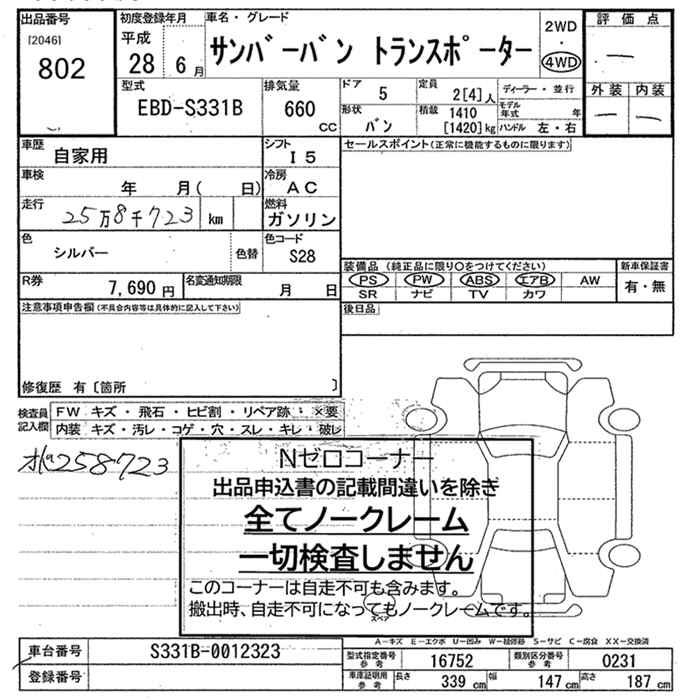 出品番号 初度登録年月 車名・グレード 2WD 評価点
[2046] 平成 サンバーバン トランスポーター ・ ―
802 28 6月 4WD
型式 排気量 ドア 5 定員 2[4]人 ディーラー・並行 外装 内装
EBD-S331B 660 CC 形状 バン 積載 1410 [1420]kg モデル年式 年 ― ―
ハンドル 左・右
車歴 自家用 シフト I5 セールスポイント(正常に機能するものに限ります)
車検 年 月( 日) 冷房 AC
走行 25万8千723 km 燃料 ガソリン
色 シルバー 色替 色コード S28
R券 7,690円 名変通知期限 月 日 装備品 (純正品に限り○をつけてください) 新車保証書
PS PW ABS エアB AW 有・無
SR ナビ TV カワ
注意事項申告欄(不具合内容等は具体的に記入して下さい) 後日品
修復歴 有〔箇所 〕
検査員記入欄 FW キズ・飛石・ヒビ割・リペア跡・×要
内装 キズ・汚レ・コゲ・穴・スレ・キレ・破レ
258723
Nゼロコーナー
出品申込書の記載間違いを除き
全てノークレーム
一切検査しません
このコーナーは自走不可も含みます。
搬出時、自走不可になってもノークレームです。
スペア
A―キズ E―エクボ U―凹み W―補修跡 S―サビ C―腐食 XX―交換済
車台番号 S331B-0012323 型式指定番号 参考 16752 類別区分番号 参考 0231
登録番号 車庫証明用 参考 長さ 339 cm 幅 147 cm 高さ 187 cm